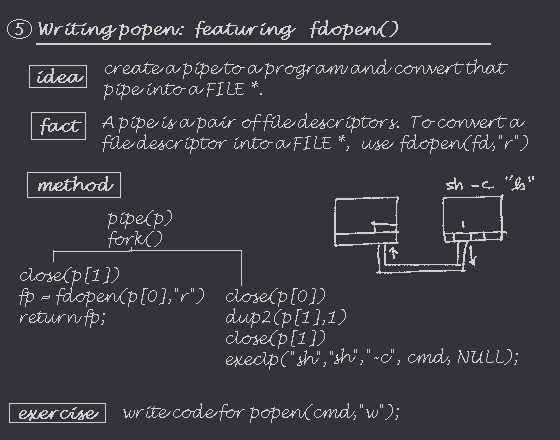 5 Writing popen: featuring fdopen()
idea create a pipe to a program and convert that
pipe into a FILE *.
fact A pipe is a pair of file descriptors. To convert a
file descriptor into a FILE *, use fdopen(fd,"r")
method
sh -c "ls"
pipe(p)
fork()
close(p[1])
fp = fdopen(p[0],"r")
return fp;
close(p[0])
dup2(p[1],1)
close(p[1])
execlp("sh","sh","-c", cmd, NULL);
exercise write code for popen(cmd,"w");